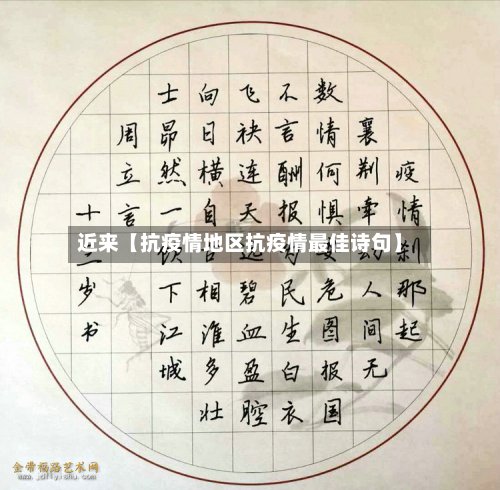 疫情刹那起
襄荆牵动人间无
数情何惧危图报国
不言酬报为民生白衣
飞袂连天碧血盈腔
向日横自古相淮多壮
士昂然一饮下江城
周立言
十岁书
近来【抗疫情地区抗疫情最佳诗句】
金带福路艺术网
www.jdflyshu.com